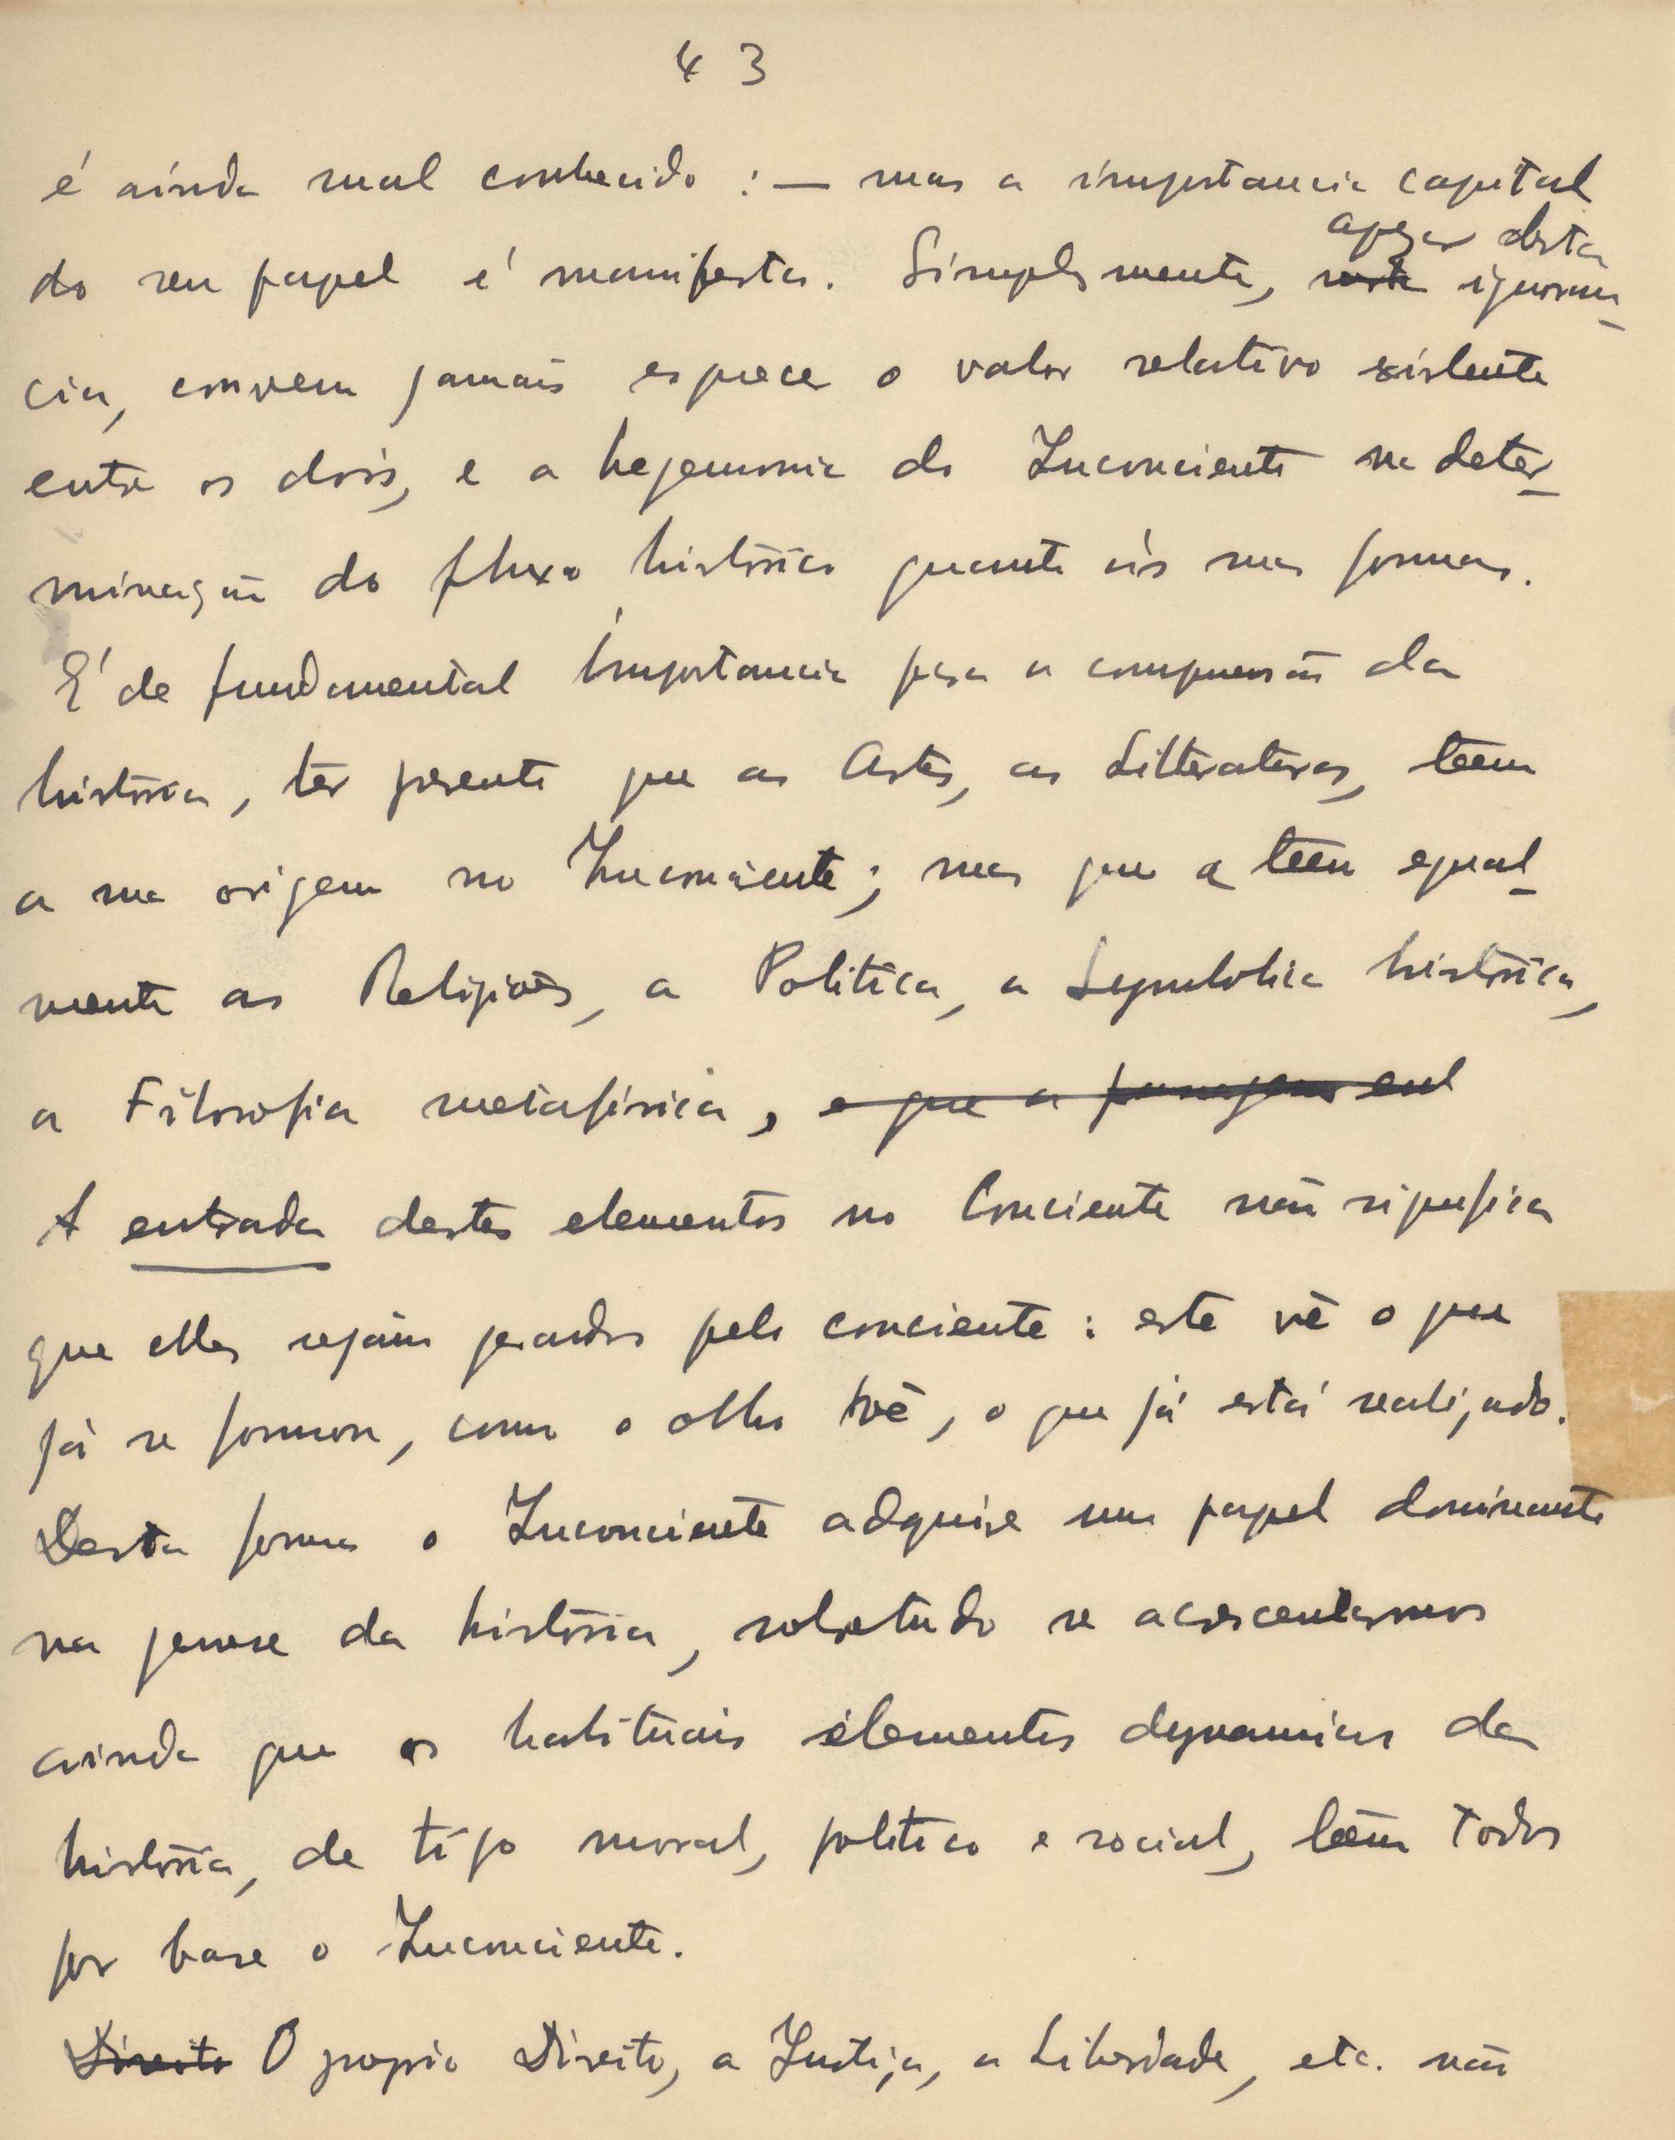 43
é ainda mal conhecido : — mas a importancia capital
do seu papel é manifesta. Simplesmente, apezar desta ignoran-
cia, convem jamais esquecer o valor relativo existente
entre os dois, e a hegemonia do Inconciente na deter-
minação do fluxo histórico quanto ás suas formas.
É de fundamental importancia para a compreensão da
história, ter presente que as Artes, as Litteraturas, teem
a sua origem no Inconciente; mas que a teem egual-
mente as Religiões, a Politica, a Symbolica histórica,
a Filosofia metafisica, e que a passagem
A entrada destes elementos no Conciente não significa
que elles sejam gerados pelo conciente : este vê o que
já se formou, como o olho vê, o que já está realizado.
Desta forma o Inconciente adquire um papel dominante
na genese da história, sobretudo se acrescentarmos
ainda que os habituais elementos dynamicos da
história, de tipo moral, politico e social, teem todos
por base o Inconciente.
Direito O proprio Direito, a Justiça, a Liberdade, etc. não